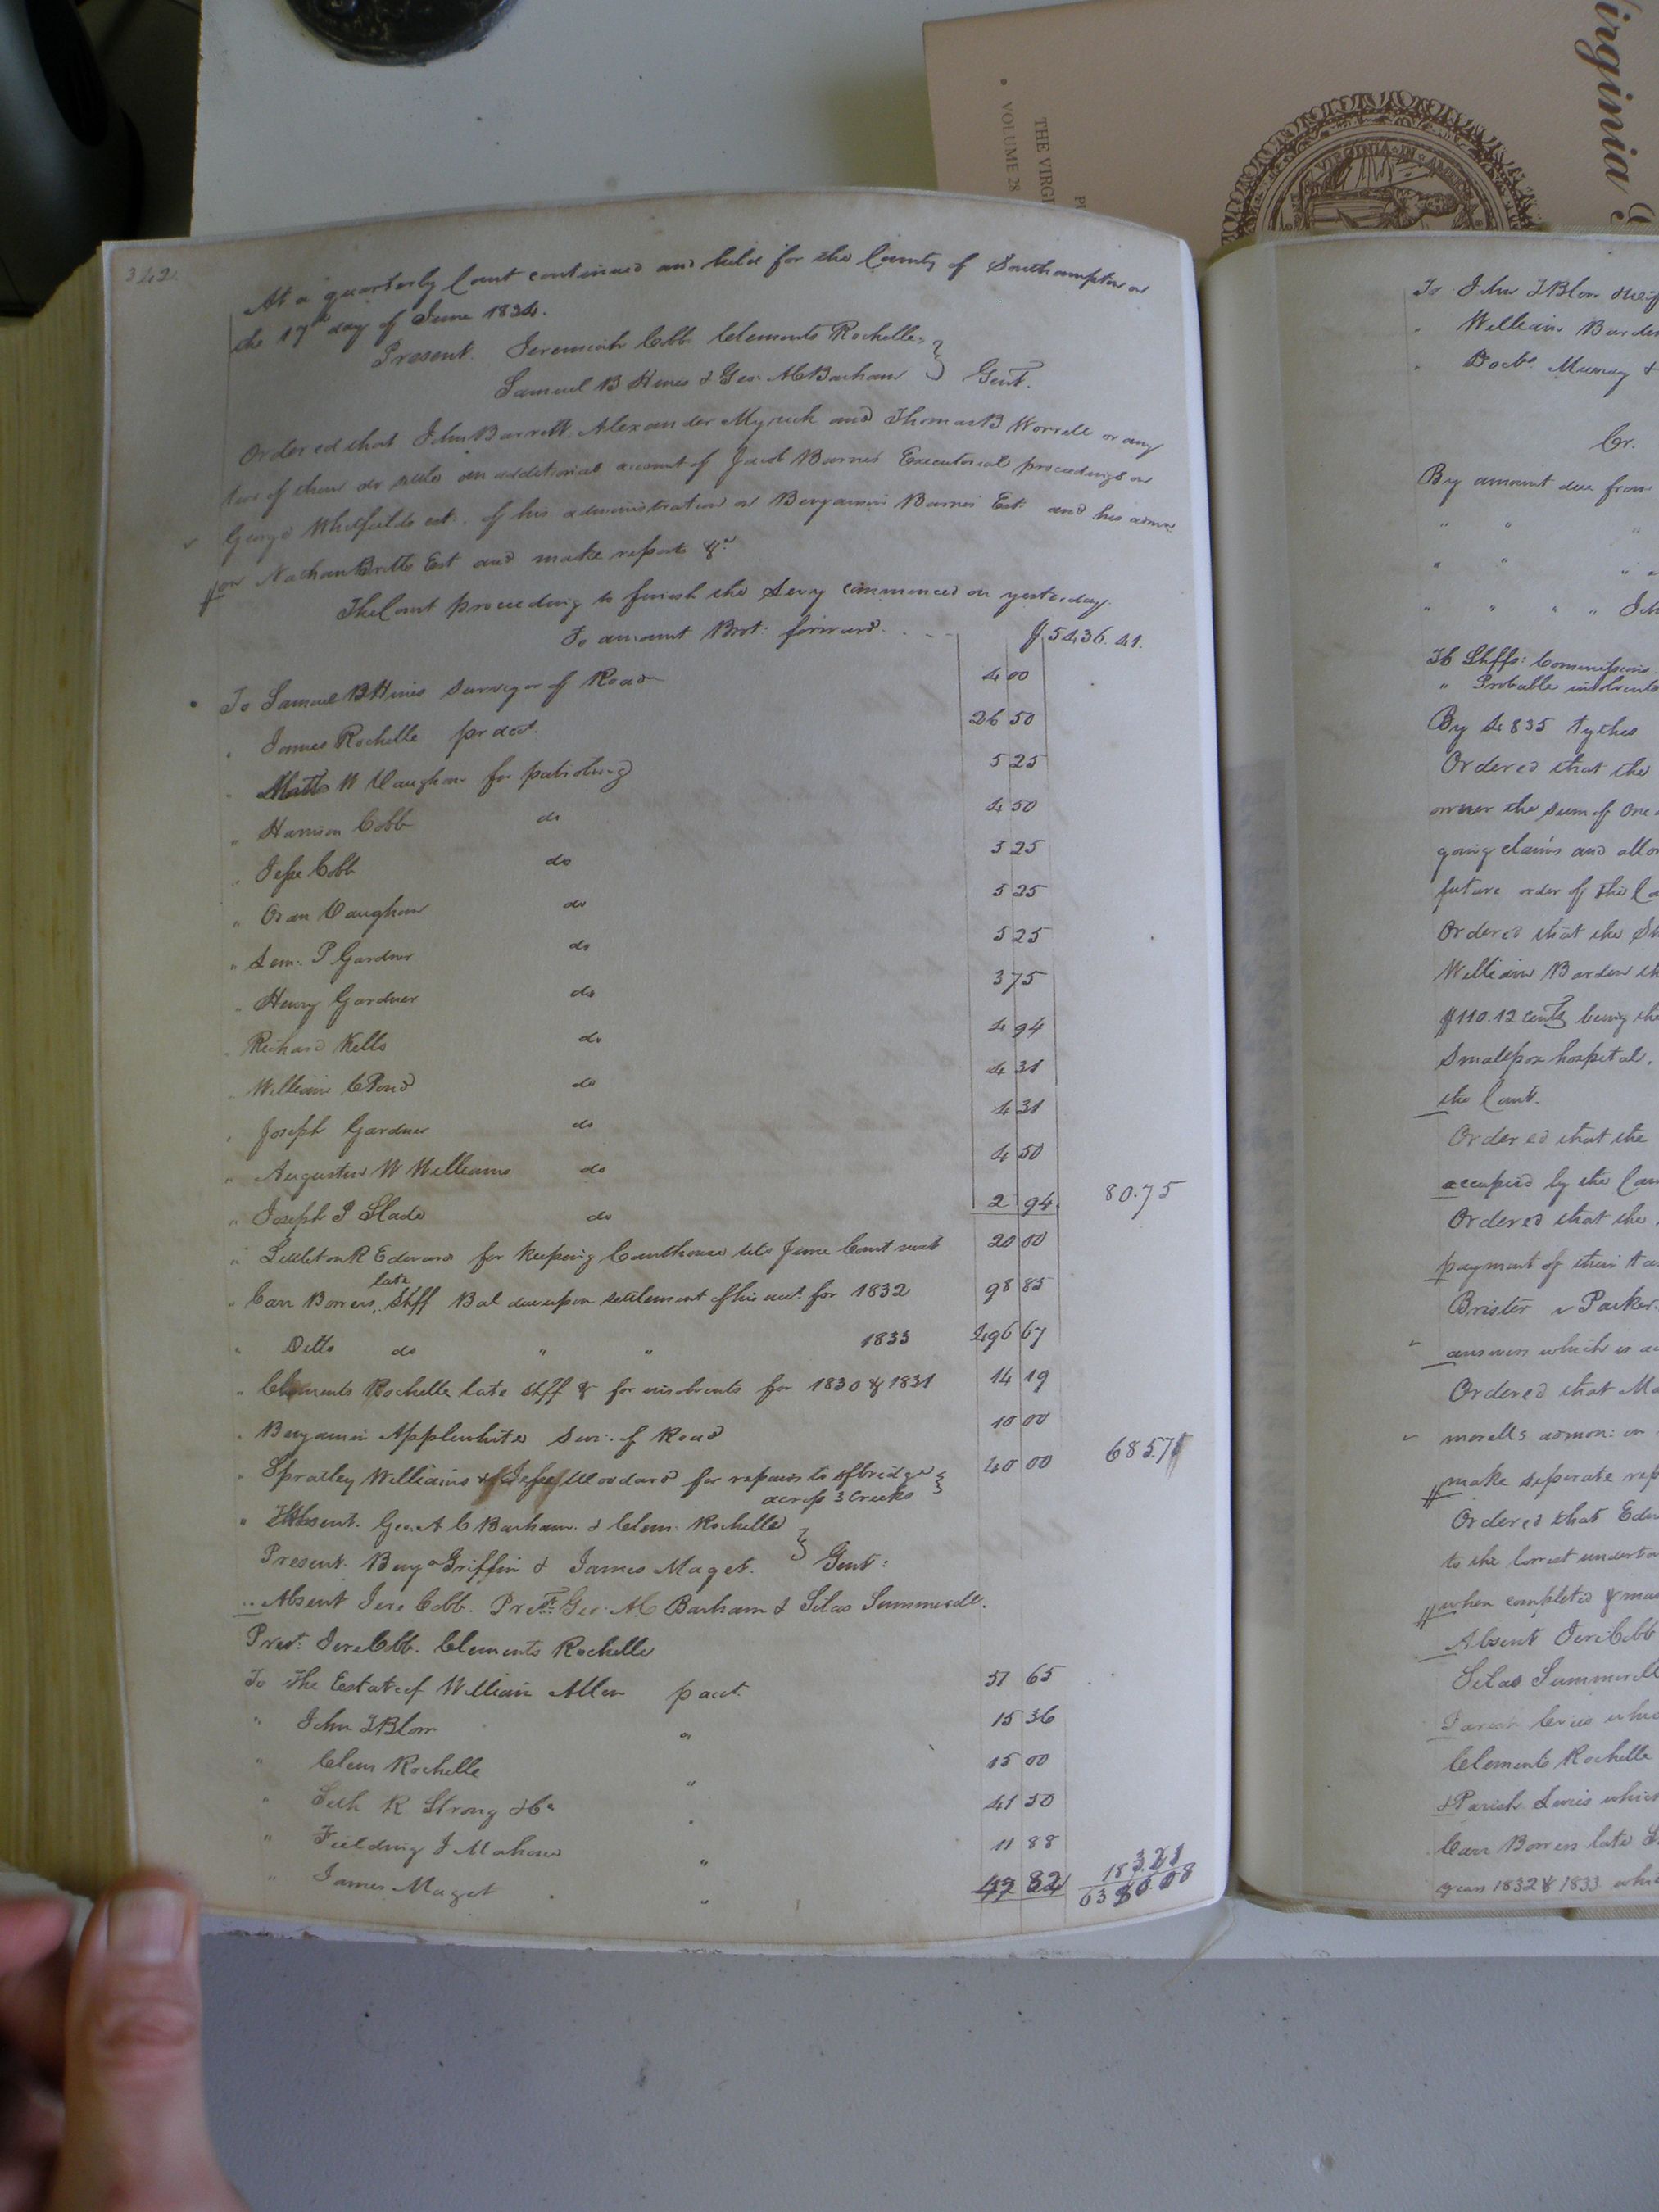 342
At a quarterly Court continued and held for the County of Southampton on
the 17th day of June 1834.
Present. Jeremiah Cobb. Clements Rochelle,
Samuel B Hines & Geo: A C Barham } Gent.
Ordered that John Barrett, Alexander Myrick and Thomas B Worrell or any
two of them do settle an additional account of Jacob Barnes Executorial proceedings on
George Whitfields est. of his administration on Benjamin Barnes Est: and his admn:
on Nathan Britts Est and make reports &c
The Court proceeding to finish the Levy commenced on yesterday.
To amount Brot: forward. . . $5436.41.
To Samuel B Hines surveyor of Road 4 00
" James Rochelle pr acct. 26 50
" W Vaughan for patroling 5 25
" Harrison Cobb do 4 50
" Jesse Cobb do 5 25
" Vaughan do 5 25
" Lem: P Gardner do 5 25
" Henry Gardner do 3 75
" Richard Kello do 4 94
" William C Pond do 4 31
" Joseph Gardner do 4 31
" Augustus W Williams do 4 50
" Joseph P Slade do 2 94 80.75
" Littleton R Edwards for keeping Courthouse till June Court next 20 00
" Carr Bowers, late Shff Bal due upon settlement of his acct. for 1832 98 85
" Ditto do " " 1833 496 67
" Clements Rochelle late Shff & for insolvents for 1830 & 1831 14 19
" Benjamin Applewhite Sur: of Road 10 00
" Spratley Williams & Jesse Woodard for repairs to of bridge
across 3 Creeks } 40 00 685.71
" Absent. Geo: A C Barham. & Clem: Rochelle
Present. Benja Griffin & James Maget. } Gent:
Absent Jere Cobb. Pret: Geo: A C Barham & Silas Summerell.
Pret: Jere Cobb. Clements Rochelle
To The Estate of William Allen p acct. 51 65
" John T Blow " 15 36
" Clem Rochelle " 15 00
" Seth R Strong & Co " 41 50
" Fielding J Mahone " 11 88
" James Maget " 82 183.21
To John T Blow
" William Barden
" Doctr Murray &
Cr.
By amount due from
" " "
" " "
" " " " Joh
To Shffs: Commissions
" Probable insolvents
By 4835 tythes
Ordered that the
the sum of One
going claims and
future order of the
Ordered that the
William Barden
$110.12 cents being the
Smallpox hospital.
the Court.
Ordered that the
occupied by the
Ordered that the
payment of their
Brister v Parker.
answer which is
Ordered that
admon: on
make seperate
Ordered that
to the lowest
when completed &
Absent Jere Cobb
Silas Summerell
Parish Levies
Clements Rochelle
& Parish Levies which
Carr Bowers late
years 1832 & 1833
Virginia
THE VIRGI
VOLUME 28
VIRGINIA